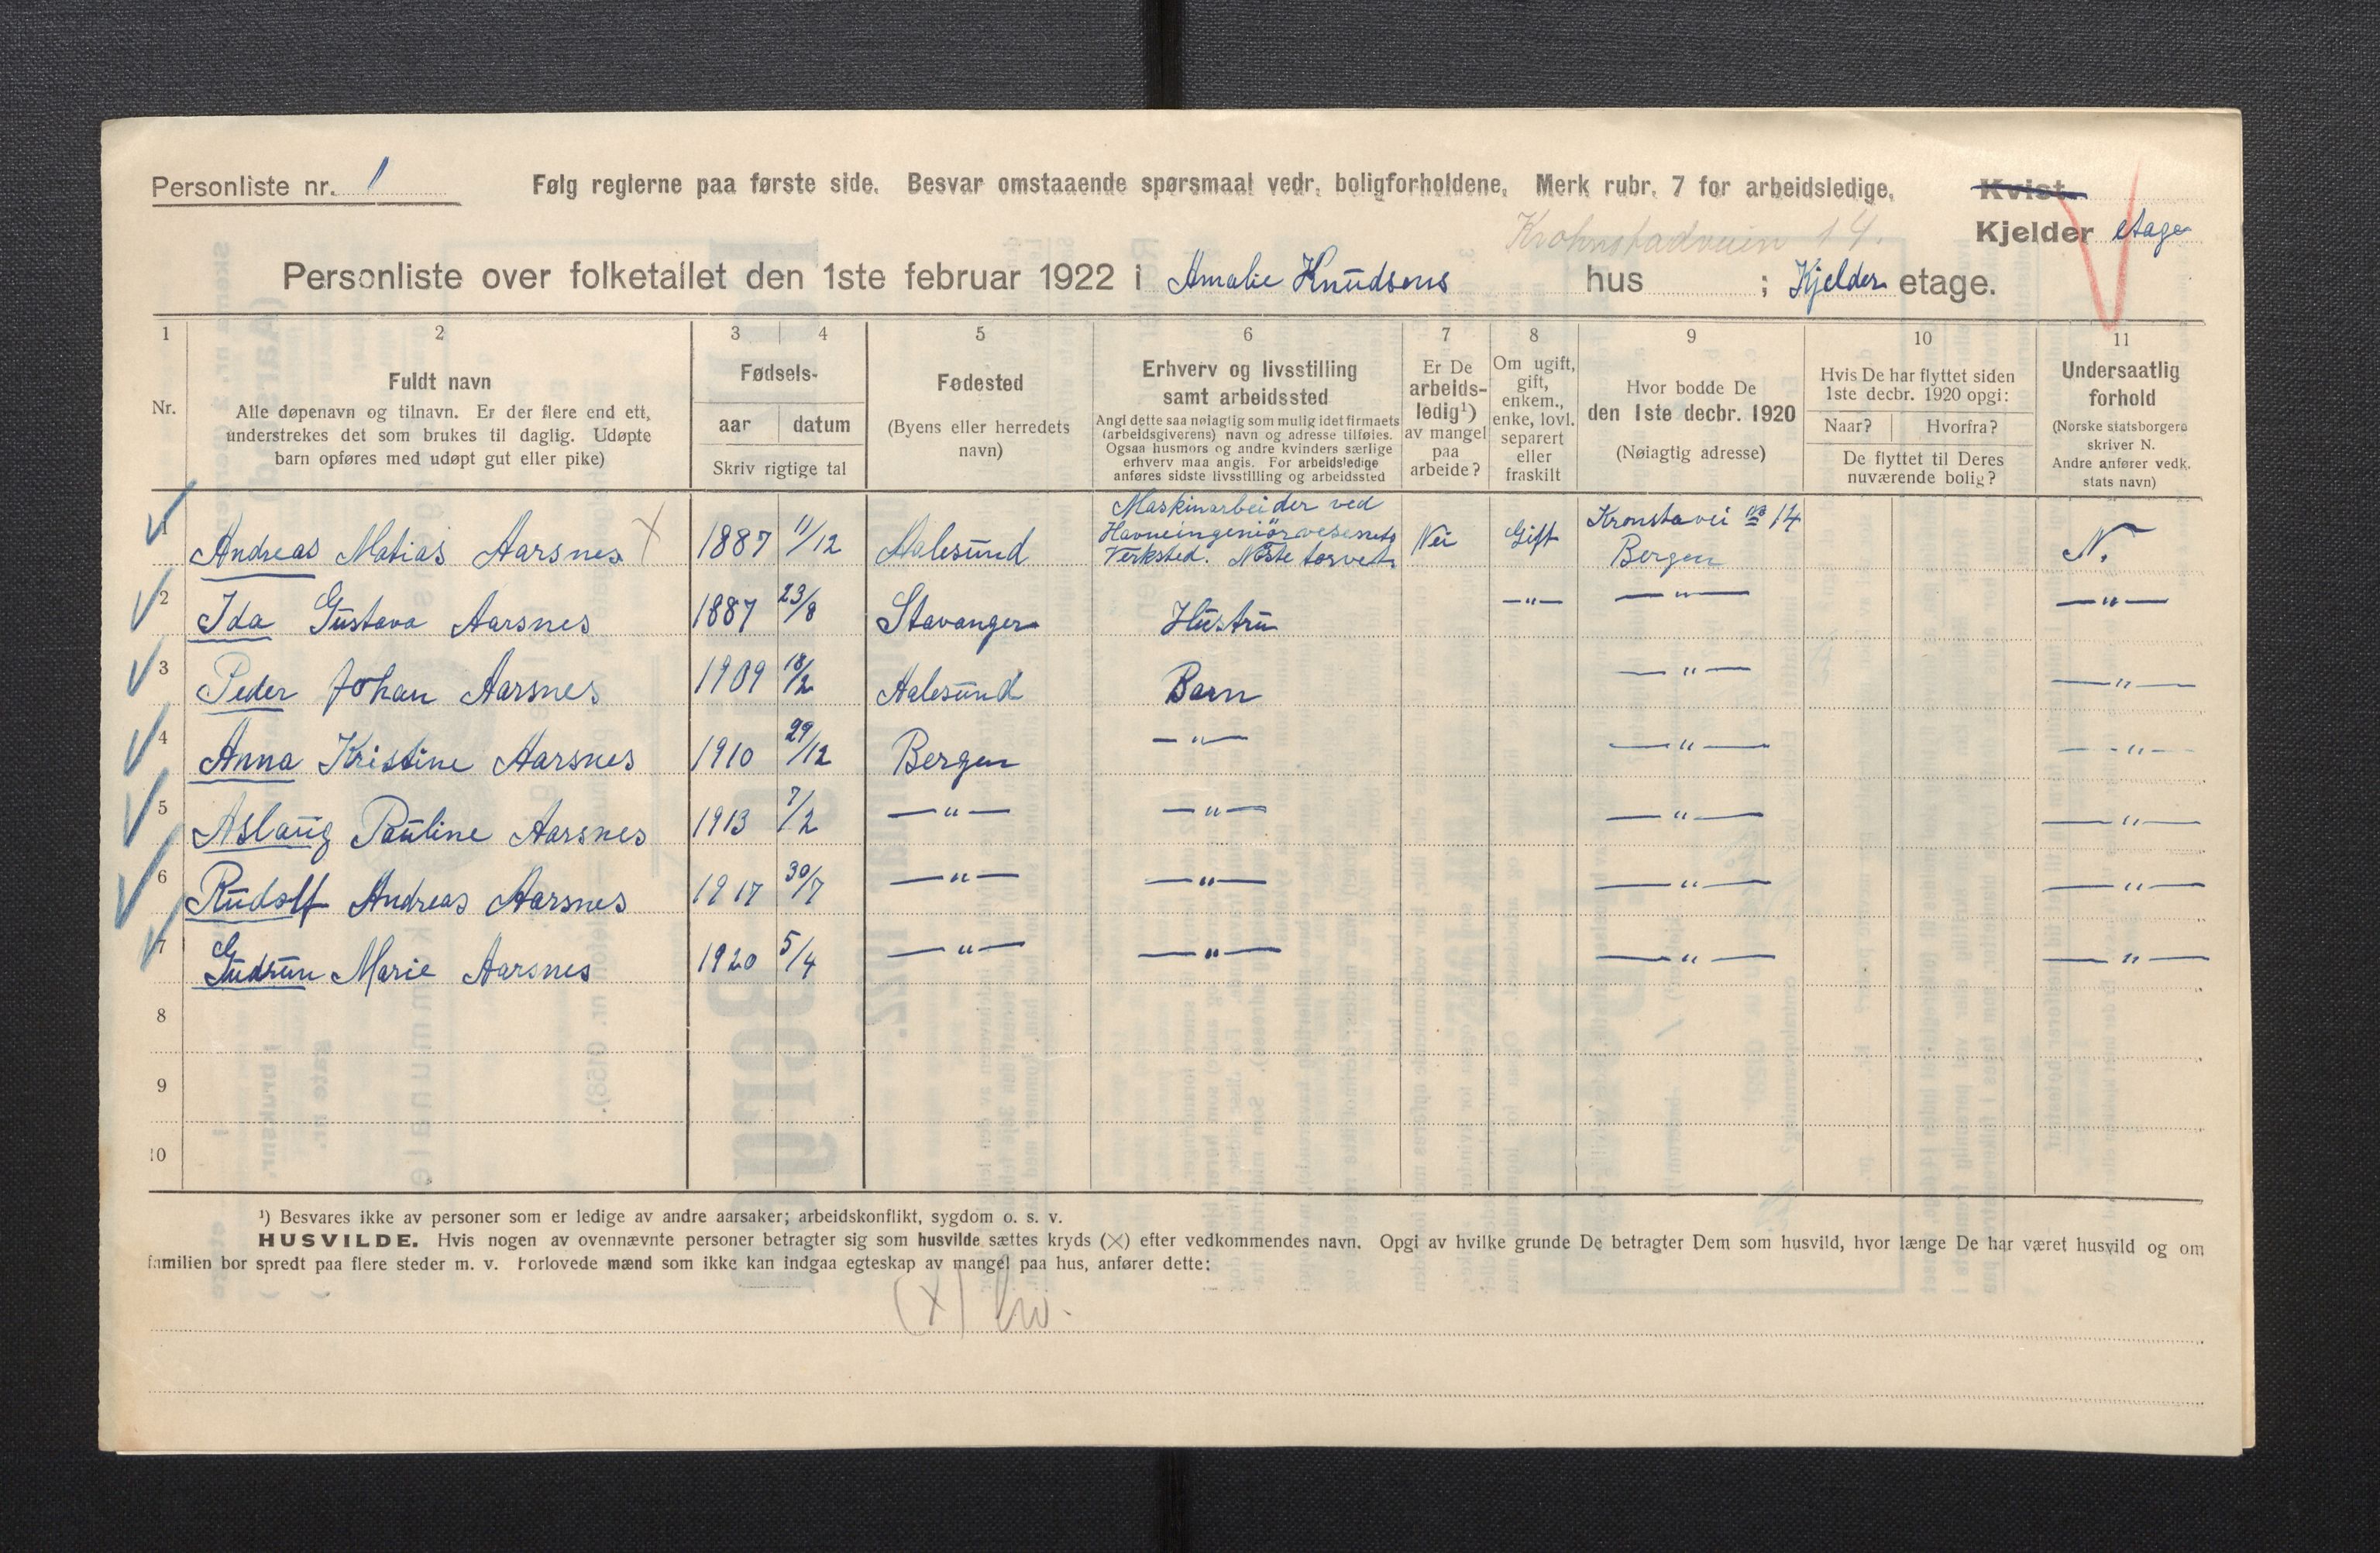 Personliste nr. 1
Følg reglerne paa første side. Besvar omstaaende spørsmaal vedr. boligforholdene. Merk rubr. 7 for arbeidsledige.
Kvist
Kjelder etage
Krohnstadveien 14.
Personliste over folketallet den 1ste februar 1922 i Amalie Knudsens hus ; Kjelder etage.
1 2 3 4 5 6 7 8 9 10 11
Nr.
Fuldt navn
Alle døpenavn og tilnavn. Er der flere end ett,
understrekes det som brukes til daglig. Udøpte
barn opføres med udøpt gut eller pike)
Fødsels-
aar datum
Skriv rigtige tal
Fødested
(Byens eller herredets
navn)
Erhverv og livsstilling
samt arbeidssted
Angi dette saa nøiagtig som mulig idet firmaets
(arbeidsgiverens) navn og adresse tilføies.
Ogsaa husmors og andre kvinders særlige
erhverv maa angis. For arbeidsledige
anføres sidste livsstilling og arbeidssted
Er De
arbeids-
ledig¹)
av mangel
paa
arbeide?
Om ugift,
gift,
enkem.,
enke, lovl.
separert
eller
fraskilt
Hvor bodde De
den 1ste decbr. 1920
(Nøiagtig adresse)
Hvis De har flyttet siden
1ste decbr. 1920 opgi:
Naar? Hvorfra?
De flyttet til Deres
nuværende bolig?
Undersaatlig
forhold
(Norske statsborgere
skriver N.
Andre anfører vedk.
stats navn)
1 Andreas Matias Aarsnes X 1887 11/12 Aalesund Maskinarbeider ved Havneingeniørvesenets Verksted. Nöste torvet. Nei Gift Kronstavei No 14 Bergen N.
2 Ida Gustava Aarsnes 1887 23/8 Stavanger Hustru —"— —"— —"—
3 Peder Johan Aarsnes 1909 18/2 Aalesund Barn —"— —"—
4 Anna Kristine Aarsnes 1910 29/12 Bergen —"— —"— —"—
5 Aslaug Pauline Aarsnes 1913 7/2 —"— —"— —"— —"—
6 Rudolf Andreas Aarsnes 1917 30/7 —"— —"— —"— —"—
7 Gudrun Marie Aarsnes 1920 5/4 —"— —"— —"— —"—
8
9
10
¹) Besvares ikke av personer som er ledige av andre aarsaker; arbeidskonflikt, sygdom o. s. v.
HUSVILDE. Hvis nogen av ovennævnte personer betragter sig som husvilde sættes kryds (X) efter vedkommendes navn. Opgi av hvilke grunde De betragter Dem som husvild, hvor længe De har været husvild og om
familien bor spredt paa flere steder m. v. Forlovede mænd som ikke kan indgaa egteskap av mangel paa hus, anfører dette:
(X)